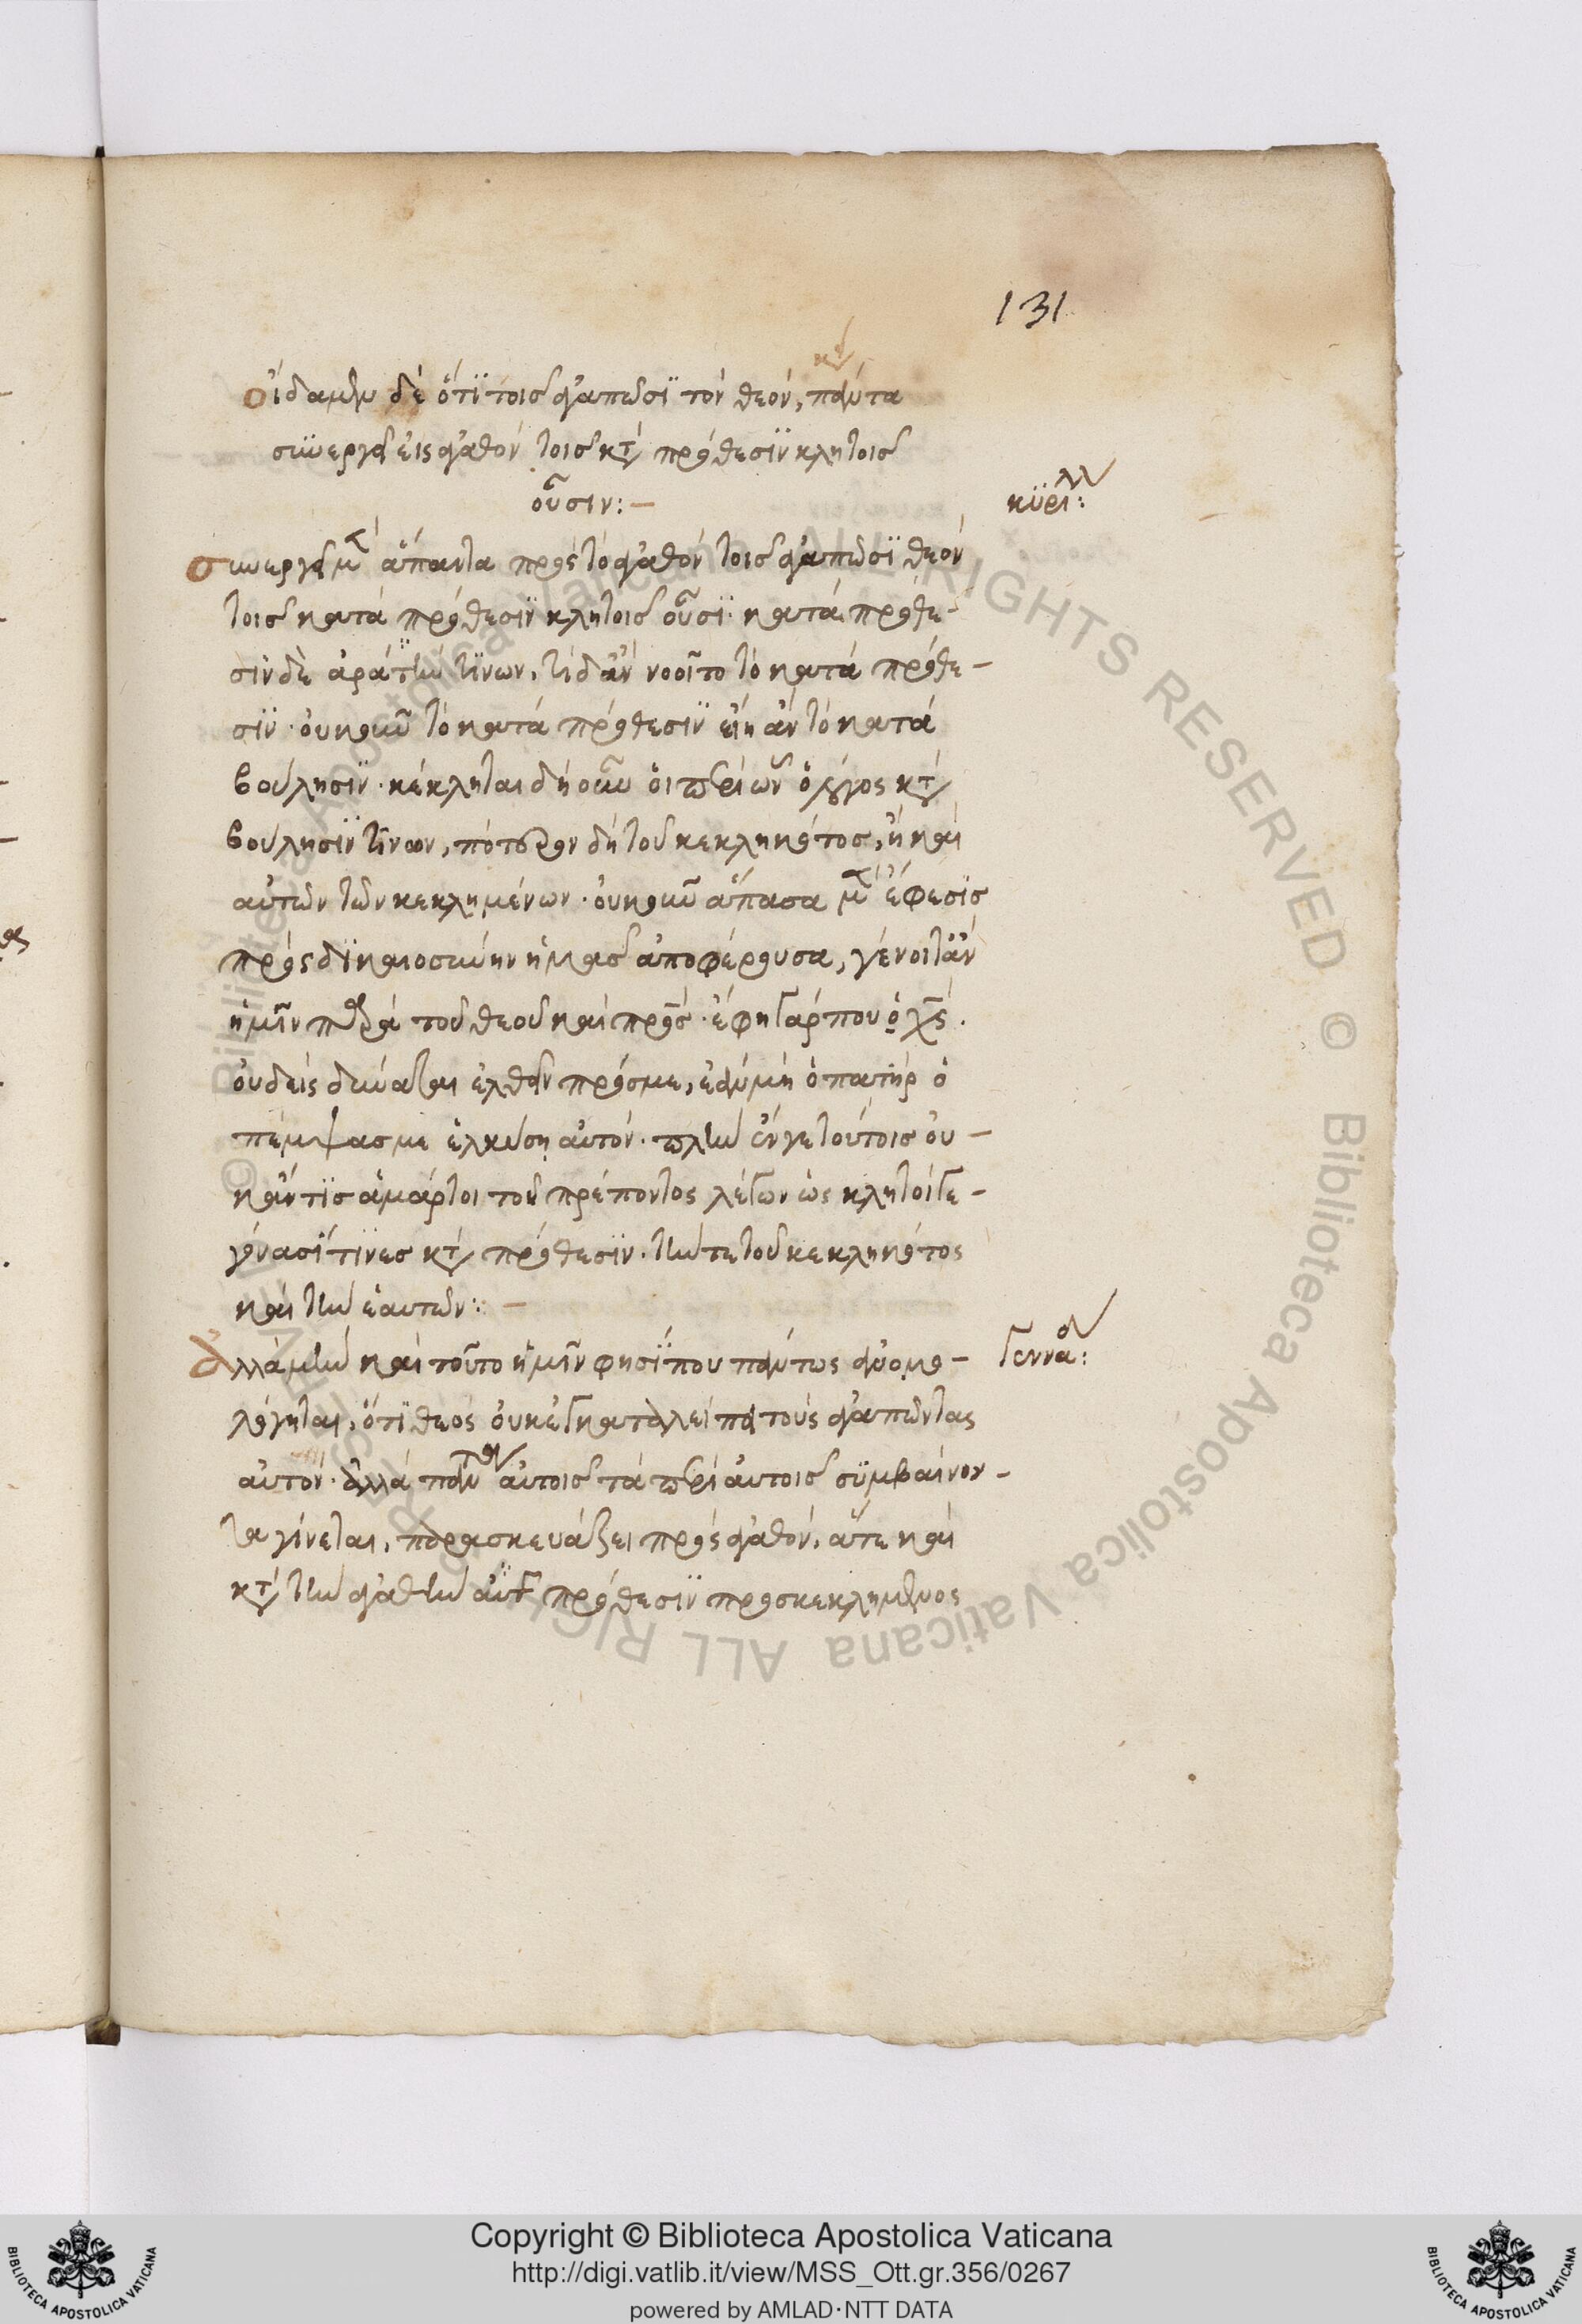 131
κδ
οἴδαμεν δὲ ὅτι τοῖς ἀγαπῶσι τὸν θεόν, πάντα
συνεργεῖ εἰς ἀγαθόν τοῖς κατὰ πρόθεσιν κλητοῖς
οὖσιν:—
κυρίλλ:
συνεργεῖ μὲν ἅπαντα πρὸς τὸ ἀγαθὸν τοῖς ἀγαπῶσι θεόν
τοῖς κατὰ πρόθεσιν κλητοῖς οὖσι· κατὰ πρόθε-
σιν δὲ ἆρα τὴν τίνων, τί δ' ἂν νοοῖτο τὸ κατὰ πρόθε-
σιν· οὐκοῦν τὸ κατὰ πρόθεσιν εἴη ἂν τὸ κατὰ
βούλησιν· κέκληται δὴ οὖν οἱ περὶ ὧν ὁ λόγος κατὰ
βούλησιν τίνων, πότερον δὴ τοῦ κεκληκότος, ἢ καὶ
αὐτῶν τῶν κεκλημένων· οὐκοῦν ἅπασα μὲν ἔφεσις
πρὸς δικαιοσύνην ἡμᾶς ἀποφέρουσα, γένοιτ' ἂν
ἡμῖν παρὰ τοῦ θεοῦ καὶ πρς· ἔφη γάρ που ὁ χς.
οὐδεὶς δύναται ἐλθεῖν πρός με, ἐὰν μὴ ὁ πατὴρ ὁ
πέμψας με ἑλκύσῃ αὐτόν· πλὴν ἔν γε τούτοις οὐ-
κ ἄν τις ἁμάρτοι τοῦ πρέποντος λέγων ὡς κλητοὶ γε-
γόνασί τινες κατὰ πρόθεσιν· τήν τε τοῦ κεκληκότος
καὶ τὴν ἑαυτῶν:—
ἀλλὰ μὴν καὶ τοῦτο ἡμῖν φησί που πάντως ἀνομο-
γενναδ:
λόγηται, ὅτι θεὸς οὐκ ἐγκαταλείπει τοὺς ἀγαπῶντας
αὐτόν· ἀλλὰ πάντα αὐτοῖς τὰ περὶ αὐτοῖς συμβαίνον-
τα γίνεται, παρασκευάζει πρὸς ἀγαθόν, ἅτε καὶ
κατὰ τὴν ἀγαθὴν αὐτ πρόθεσιν προσκεκλημένος
Copyright © Biblioteca Apostolica Vaticana
http://digi.vatlib.it/view/MSS_Ott.gr.356/0267
powered by AMLAD·NTT DATA
BIBLIOTECA APOSTOLICA VATICANA
BIBLIOTECA APOSTOLICA VATICANA
© Biblioteca Apostolica Vaticana ALL RIGHTS RESERVED © Biblioteca Apostolica Vaticana ALL RIGHTS RESERVED